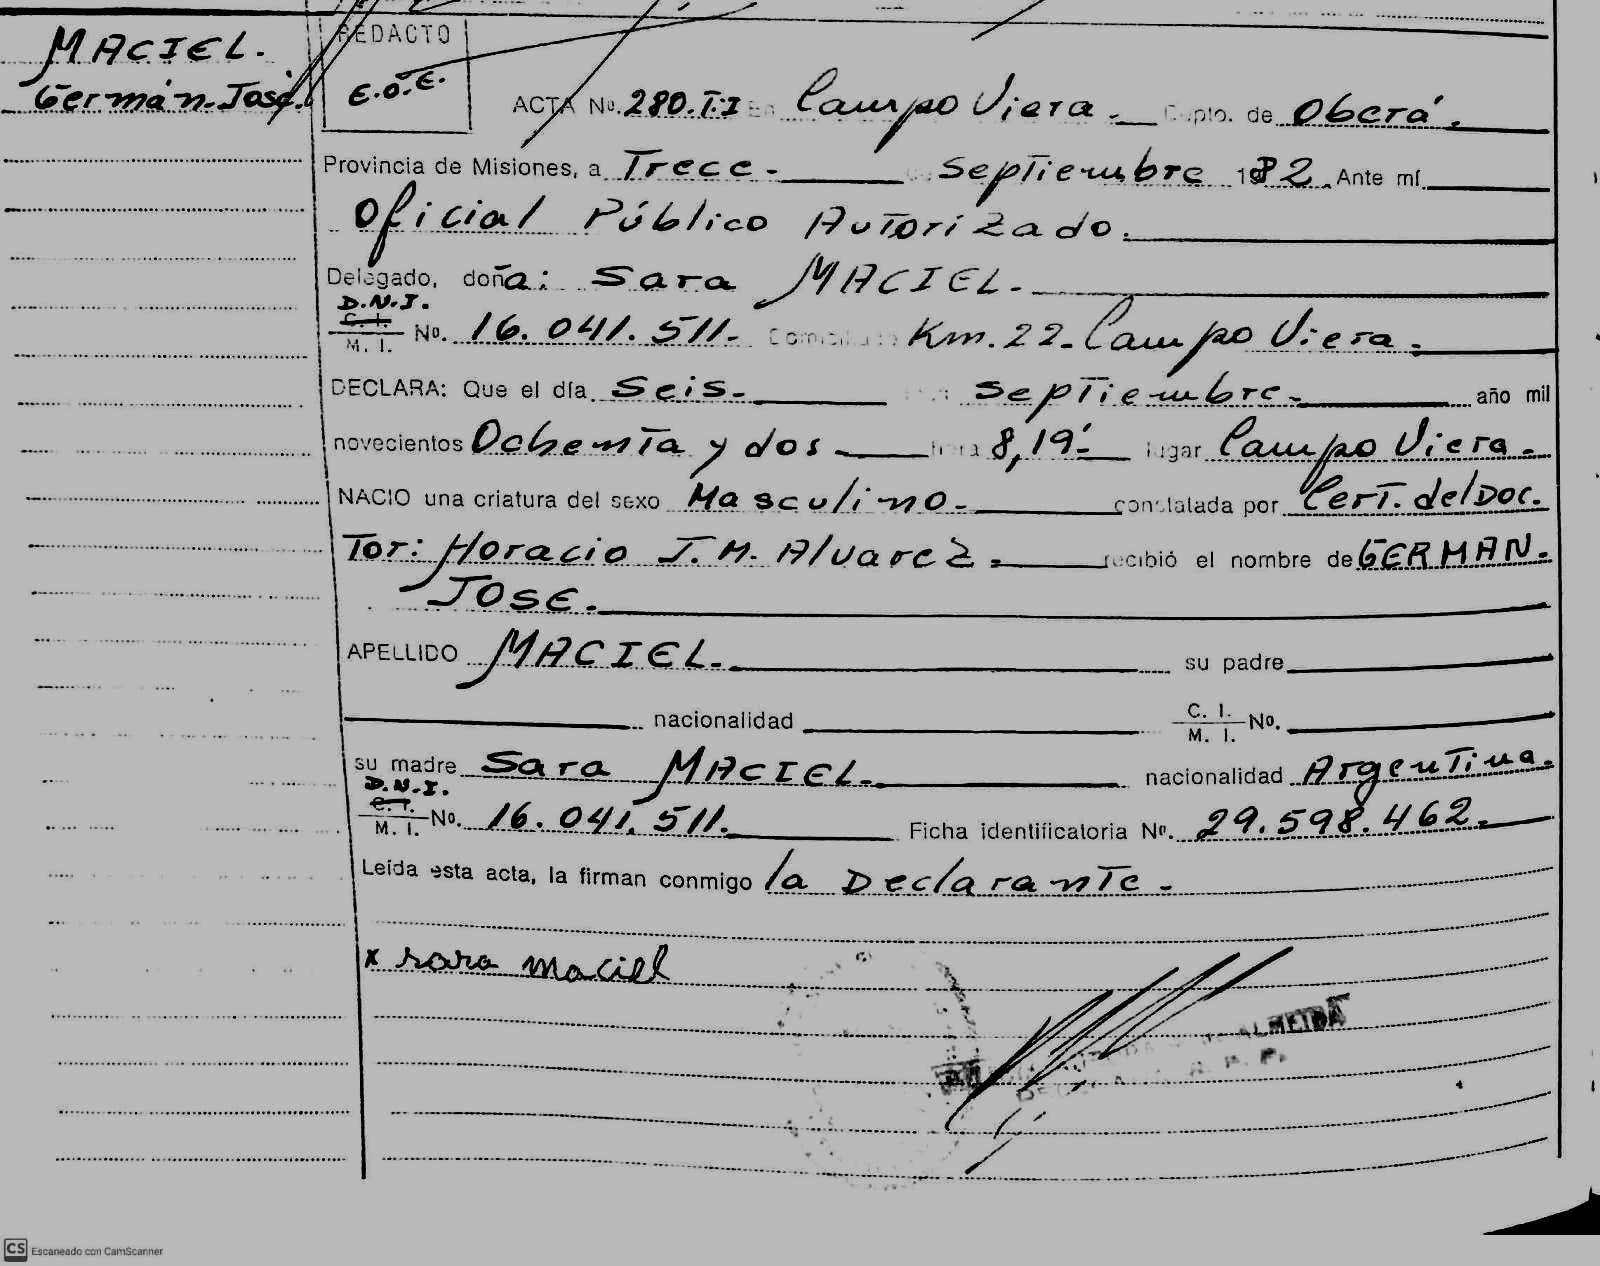 MACIEL.
Germán José.
REDACTO
E.O.E.
ACTA No. 280.T.I En Campo Viera. Dpto. de Oberá.
Provincia de Misiones, a Trece. de Septiembre 1982. Ante mí
Oficial Público Autorizado.
Delegado, doña: Sara MACIEL.
D.N.I.
C. I.
M. I. No. 16.041.511. Domiciliado Km. 22. Campo Viera.
DECLARA: Que el día Seis. Septiembre. año mil
novecientos Ochenta y dos hora 8,19' lugar Campo Viera.
NACIO una criatura del sexo Masculino. constatada por Cert. del Doc.
Tor: Horacio J. M. Alvarez. recibió el nombre de GERMAN.
JOSE.
APELLIDO MACIEL. su padre
nacionalidad C. I. M. I. No.
su madre Sara MACIEL. nacionalidad Argentina.
D.N.I.
C. I.
M. I. No. 16.041.511. Ficha identificatoria No. 29.598.462.
Leída esta acta, la firman conmigo la Declarante.
x sara maciel
ALMEIDA
CS Escaneado con CamScanner